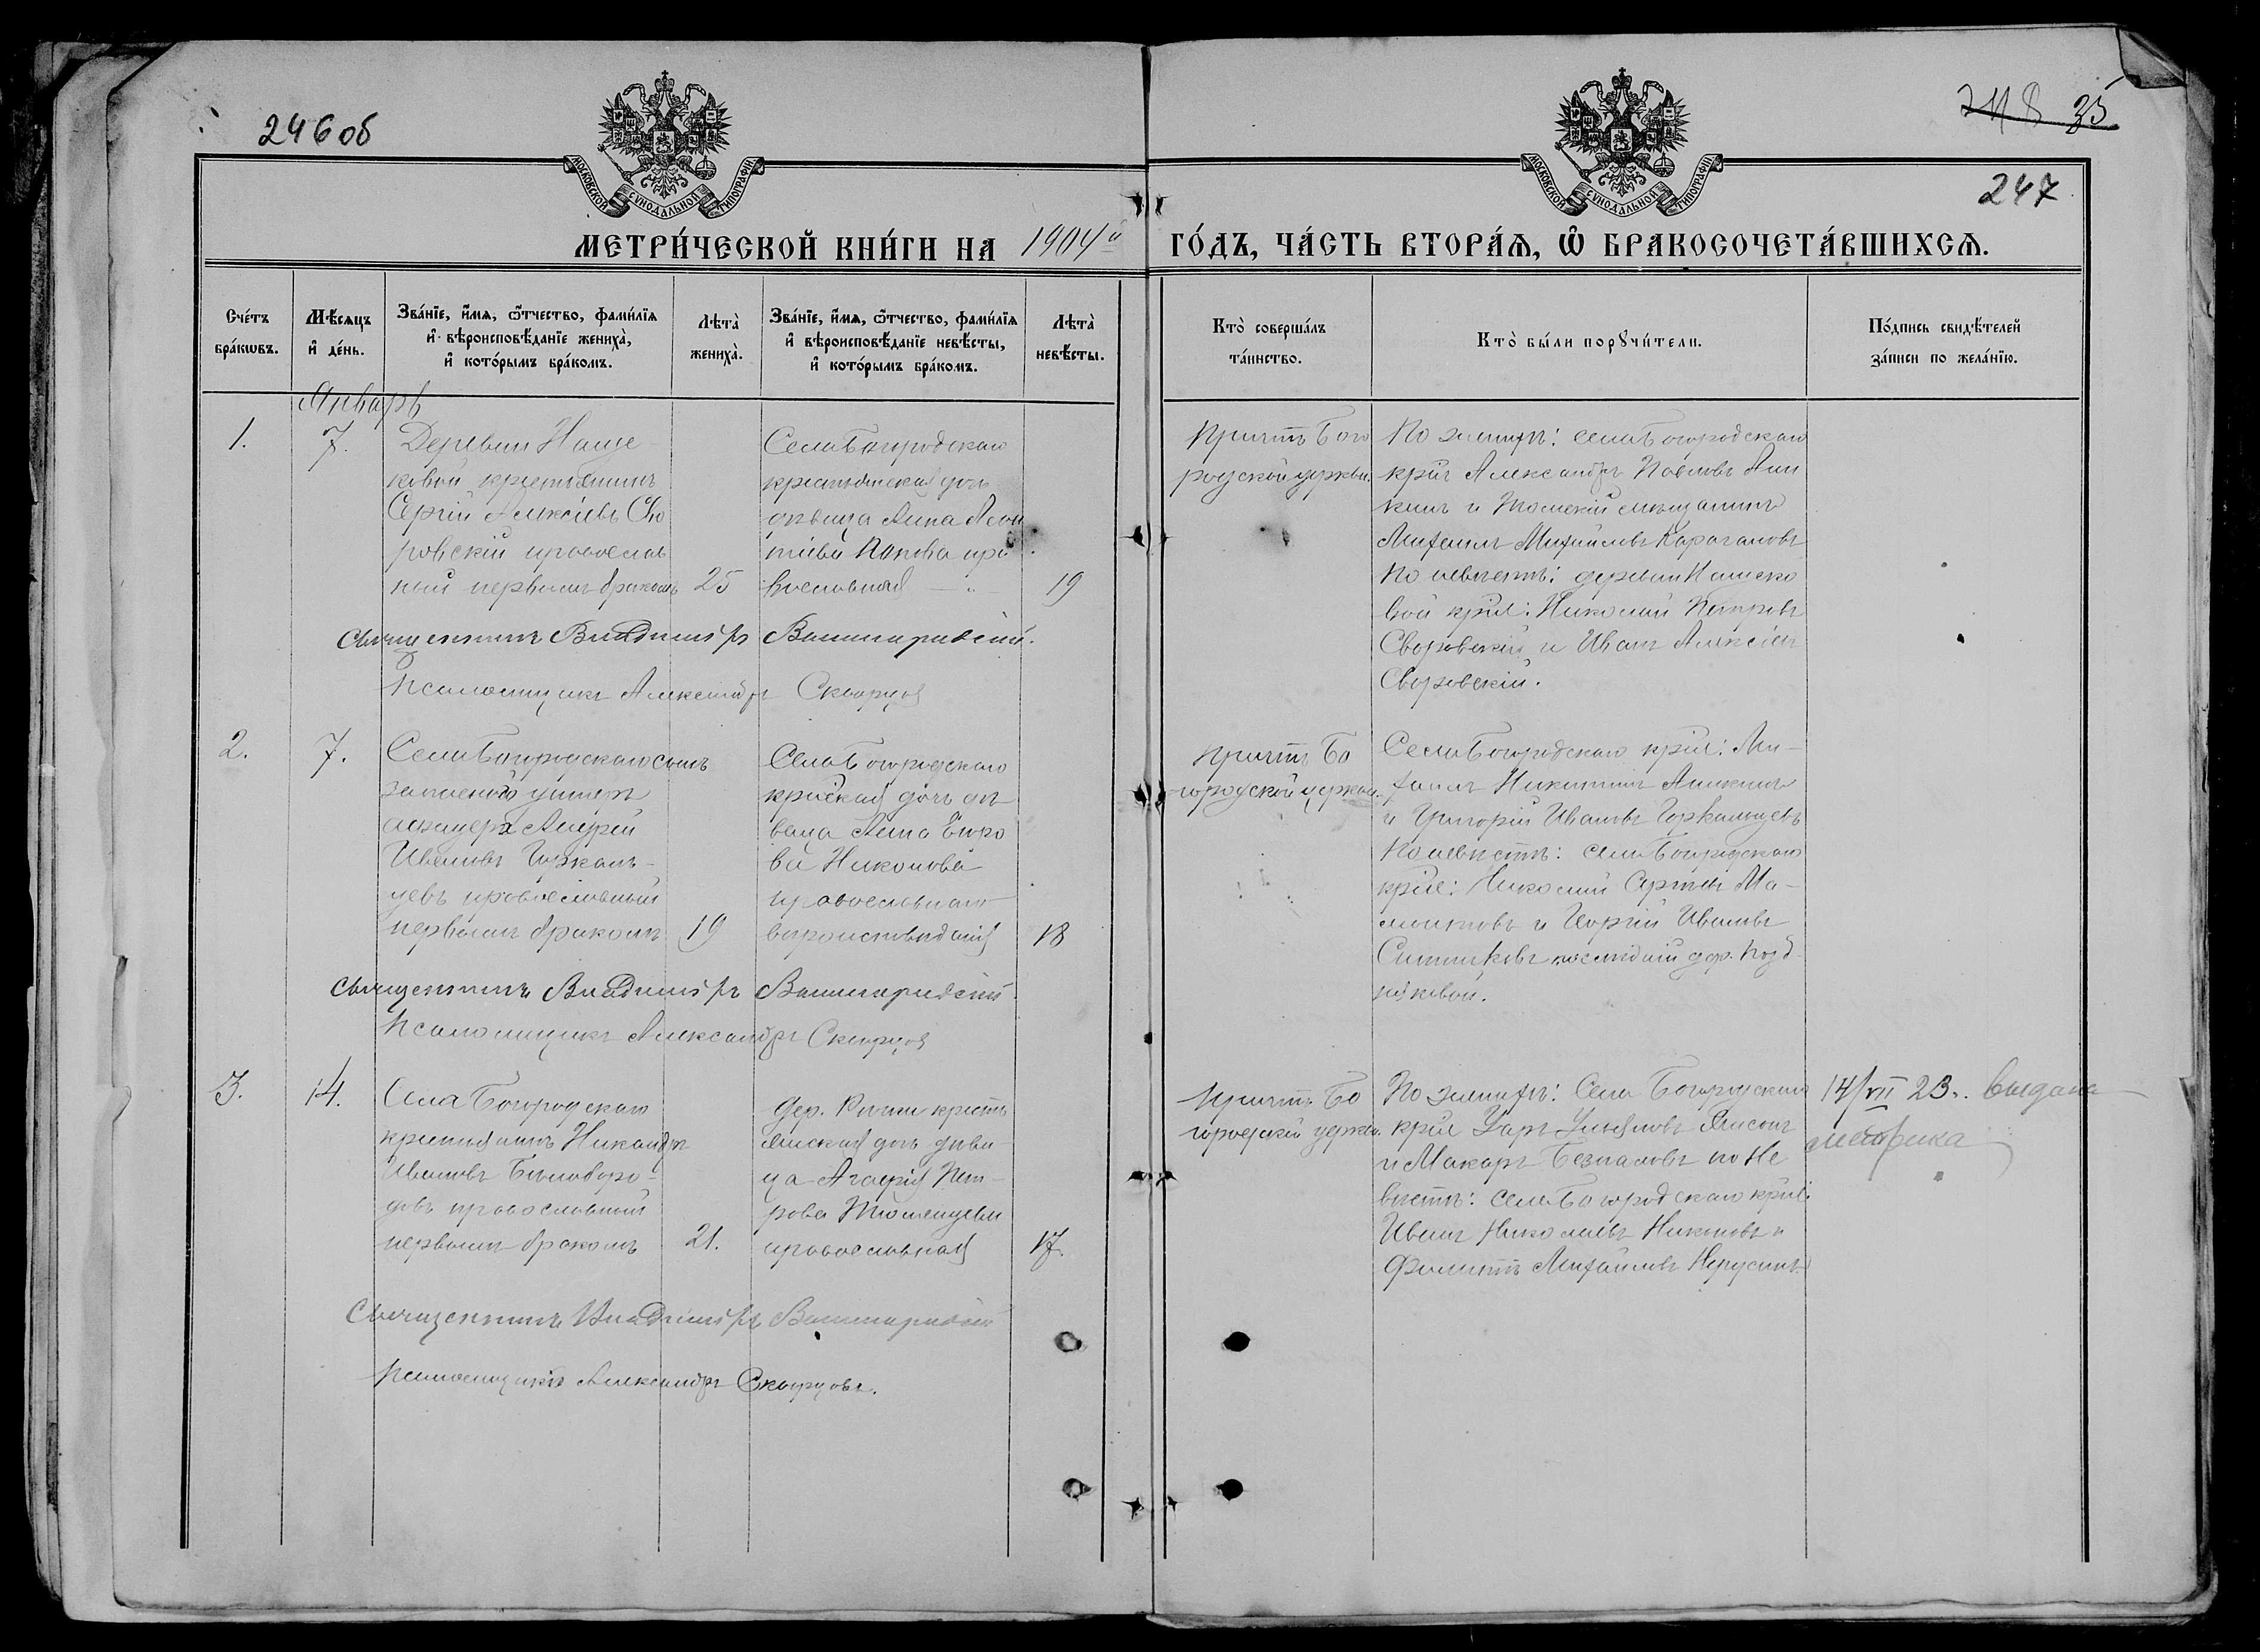 246об
248 35
247
МОСКОВСКОЙ СѴНОДАЛЬНОЙ ТИПОГРАФІИ
МОСКОВСКОЙ СѴНОДАЛЬНОЙ ТИПОГРАФІИ
МЕТРИ́ЧЕСКОЙ КНИ́ГИ НА 1904й ГО́ДЪ, ЧА́СТЬ ВТОРА́Я, Ѡ҆ БРАКОСОЧЕТА́ВШИХСѦ.
Сче́тъ
бра́кѡвъ.
Мѣ́сяцъ
и҆ де́нь.
Зва́нїе, и҆́мѧ, ѻ҆́тчество, фами́лїѧ
и҆ вѣроисповѣ́данїе жениха̀,
и҆ кото́рымъ бра́комъ.
Лѣта̀
жениха̀.
Зва́нїе, и҆́мѧ, ѻ҆́тчество, фами́лїѧ
и҆ вѣроисповѣ́данїе невѣ́сты,
и҆ кото́рымъ бра́комъ.
Лѣта̀
невѣ́сты.
Кто̀ соверша́лъ
та́инство.
Кто̀ бы́ли порꙋчи́тели.
По́дпись свидѣ́телей
за́писи по жела́нїю.
Январь
1.
7.
Деревни Наще
ковой крестьянинъ
Сергій Алексѣевъ Сво
ровскій православ
ный первымъ бракомъ
25
Села Богородскаго
крестьянская дочь
дѣвица Анна Леон
тіева Попова пра
вославная
19
Причтъ Бого
родской церкви.
По женихѣ: села Богородскаго
крѣ Александръ Павловъ Ани
кинъ и Томскій мѣщанинъ
Михаилъ Михайловъ Карагановъ
По невѣстѣ: деревни Нащеко
вой крѣе: Николай Петровъ
Своровскій и Иванъ Алексѣевъ
Своровскій.
Священникъ Владиміръ
Псаломщикъ Александръ Скворцовъ
2.
7.
Села Богородскаго сынъ
запасного унтеръ
офицера Андрей
Ивановъ
православный
первымъ бракомъ
19
Села Богородскаго
крѣская дочь дѣ
вица Анна Егоро
ва Никонова
православнаго
вѣроисповѣданія
18
Причтъ Бо
городской церкви.
Села Богородскаго крѣе: Ми-
хаилъ Никитинъ Аникинъ
и Григорій Ивановъ
По невѣстѣ: села Богородскаго
крѣе: Николай Сергѣевъ
и Георгій Ивановъ
послѣдній дер.
Священникъ Владиміръ
Псаломщикъ Александръ Скворцовъ
3.
14.
Села Богородскаго
крестьянинъ Никандръ
Ивановъ Бѣлоборо-
довъ православный
первымъ бракомъ
21.
Дер. крестъ
янская дочь дѣви-
ца Агафія Пет-
рова Тюменцева
православная
17.
Причтъ Бо
городской церкви.
По женихѣ: Села Богородскаго
крѣе
и Макаръ Безпаловъ по не
вѣстѣ: села Богородскаго крѣе:
Иванъ Николаевъ Никоновъ и
Филиппъ Михайловъ
14/VII 23 г. выдана
метрика
Священникъ Владиміръ
Псаломщикъ Александръ Скворцовъ.